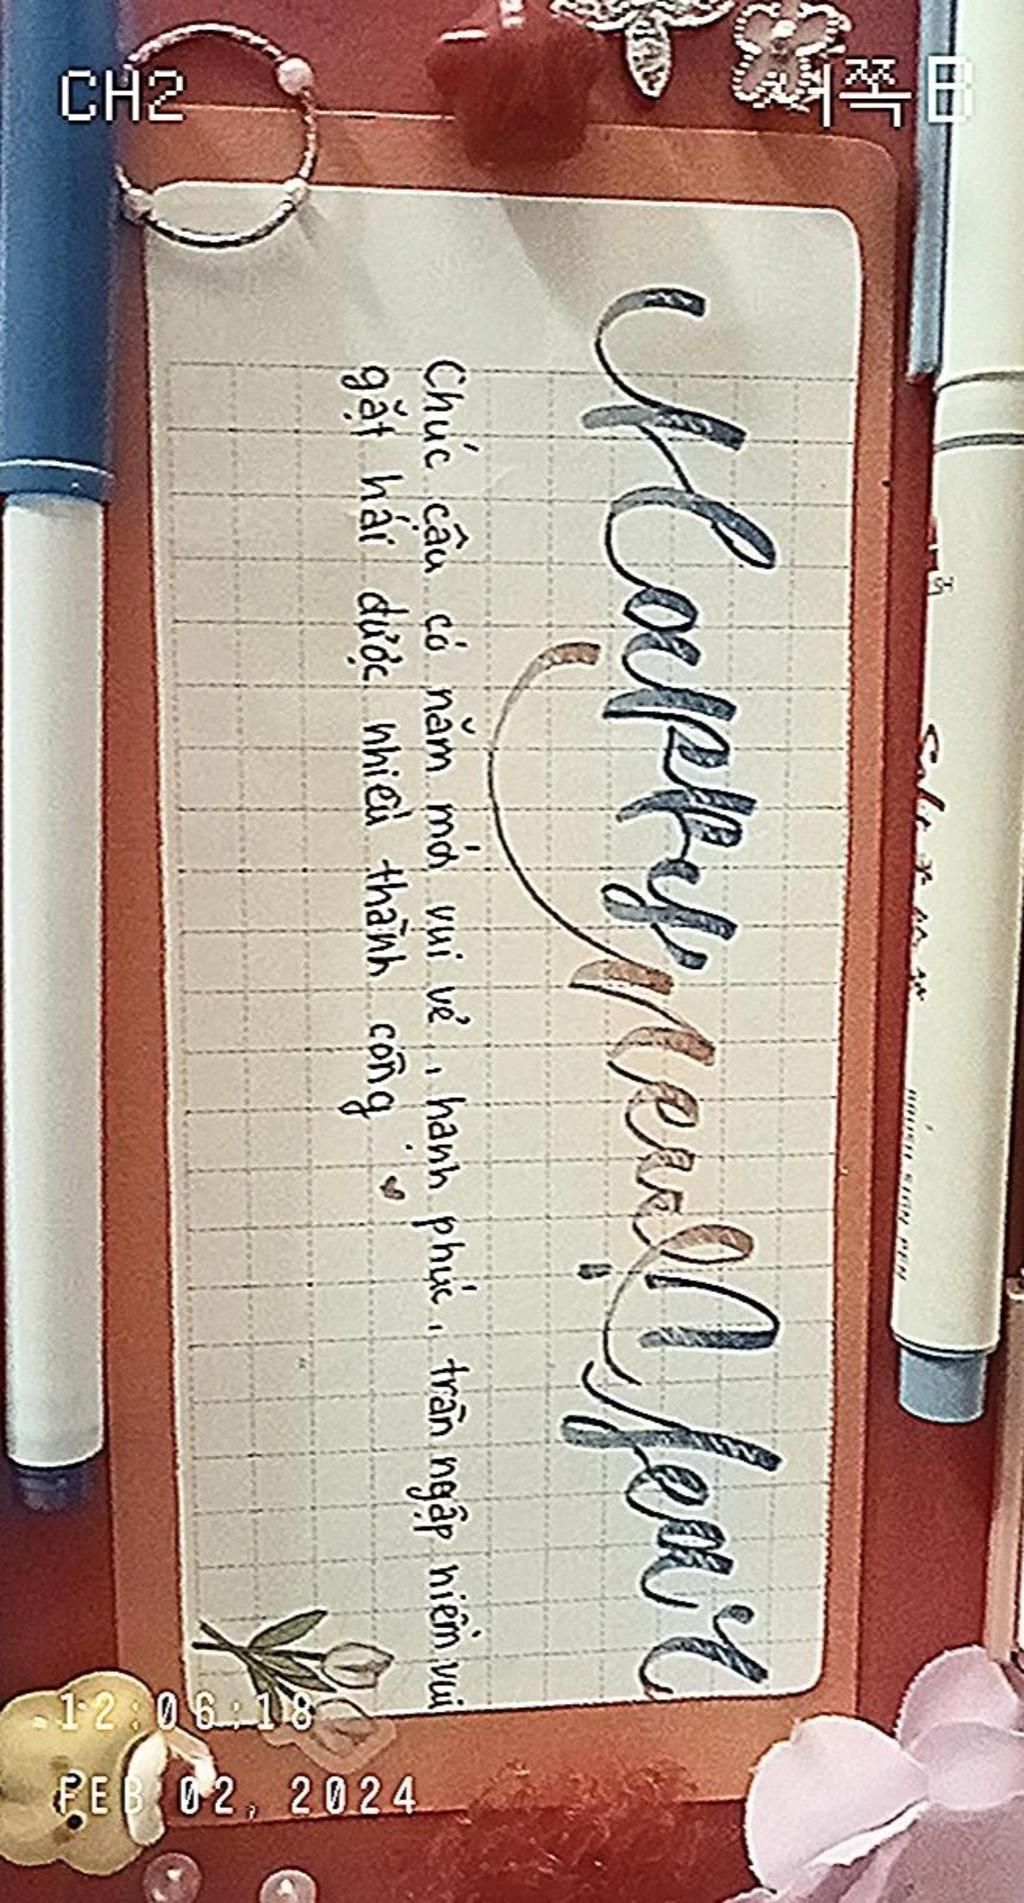 CH2
서쪽 B
Happy New Year!
Chúc cậu có năm mới vui vẻ, hạnh phúc, tràn ngập niềm vui
gặt hái được nhiều thành công
12:06:18
FEB 02, 2024